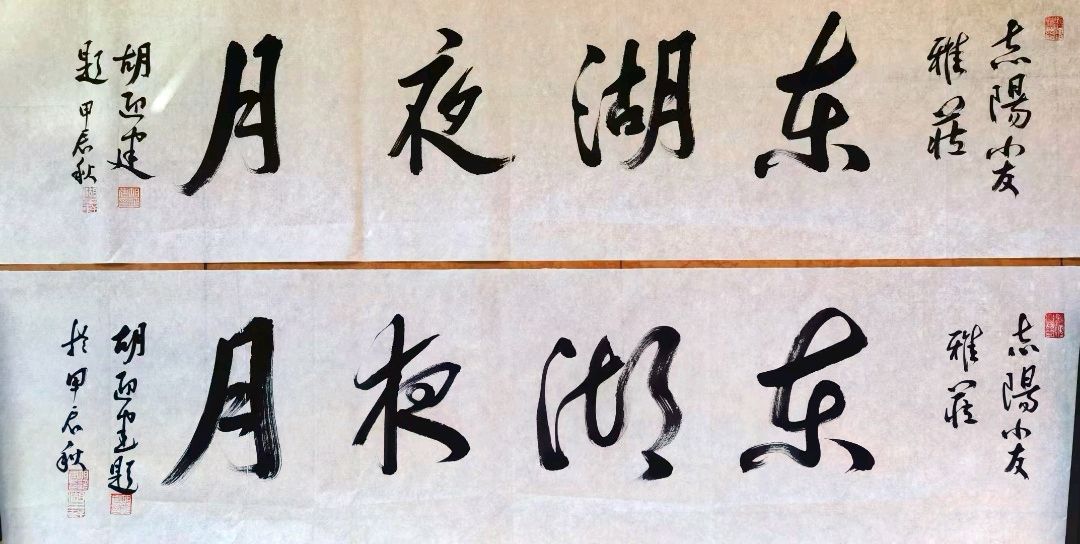 志陽小友
雅藏
东湖夜月
胡迎建
题 甲辰秋
志陽小友
雅藏
东湖夜月
胡迎建题
於甲辰秋